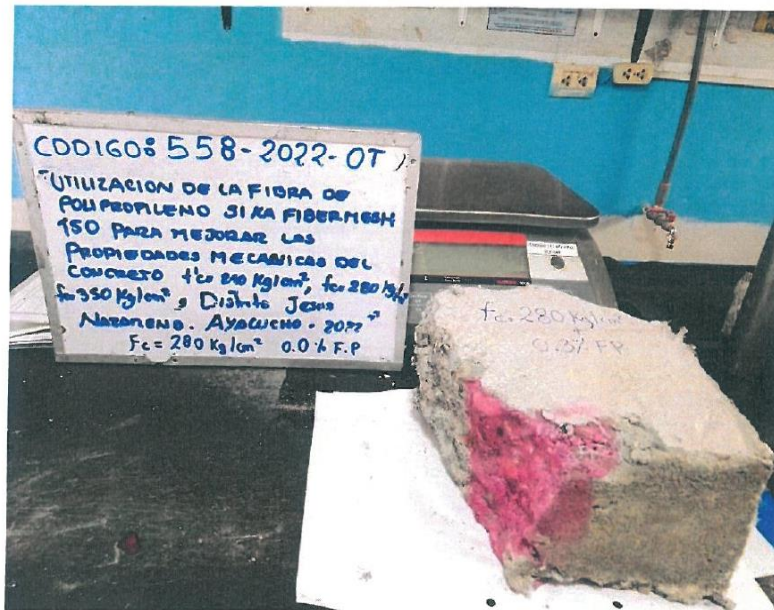 CODIGO: 558-2022-OT
"UTILIZACION DE LA FIBRA DE
POLIPROPILENO SIKA FIBERMESH
150 PARA MEJORAR LAS
PROPIEDADES MECANICAS DEL
CONCRETO f'c 210 Kg/cm², fc 280 Kg/cm²
fc 350 Kg/cm², Distrito Jesus
NAZARENO. AYACUCHO. 2022"
Fc = 280 Kg/cm² 0.0% F.P
fc. 280 Kg/cm²
0.3% FP